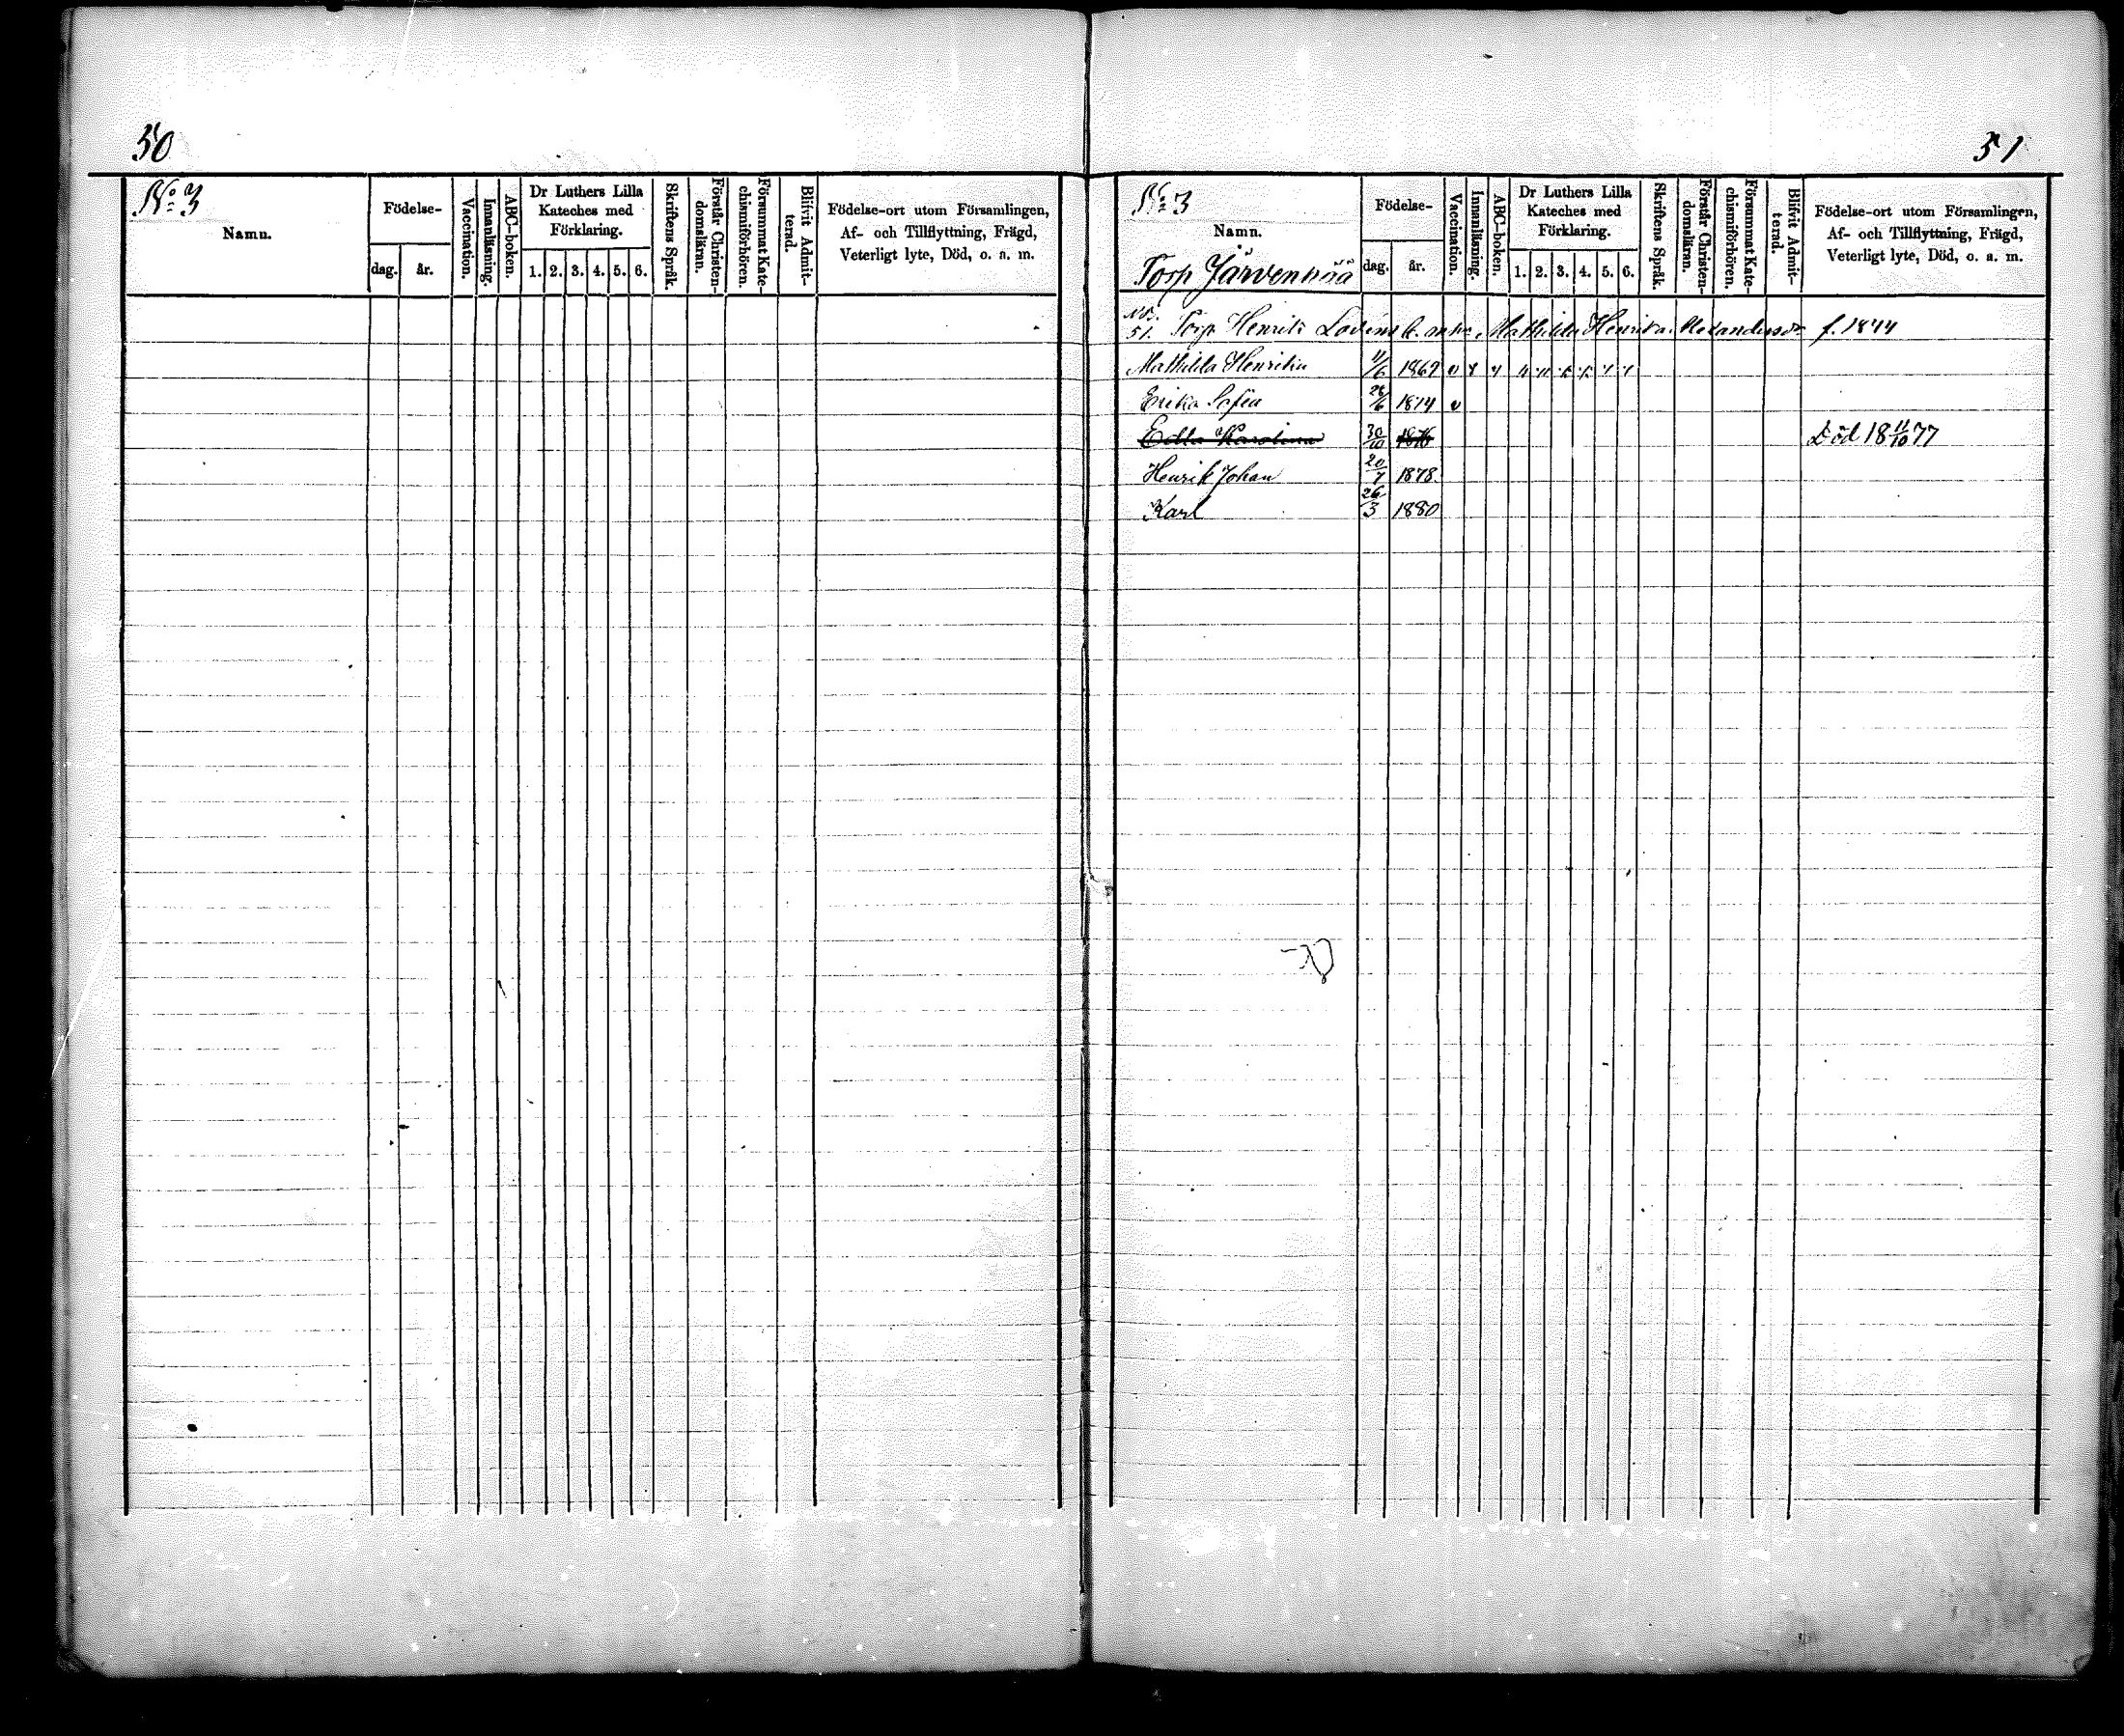 50
No 3
Namn.
Födelse-
dag. år.
Vaccination.
Innanläsning.
ABC-boken.
Dr Luthers Lilla
Kateches med
Förklaring.
1. 2. 3. 4. 5. 6.
Skriftens Språk.
Förstår Christen-
domsläran.
Försummat Kate-
chismiförhören.
Blifvit Admit-
terad.
Födelse-ort utom Församlingen,
Af- och Tillflyttning, Frägd,
Veterligt lyte, Död, o. s. m.
51
No 3
Namn.
Torp Järvenpää
Födelse-
dag. år.
Vaccination.
Innanläsning.
ABC-boken.
Dr Luthers Lilla
Kateches med
Förklaring.
1. 2. 3. 4. 5. 6.
Skriftens Språk.
Förstår Christen-
domsläran.
Försummat Kate-
chismiförhören.
Blifvit Admit-
terad.
Födelse-ort utom Församlingen,
Af- och Tillflyttning, Frägd,
Veterligt lyte, Död, o. s. m.
51. Torp Henrik Mathilda Henrika Alexandersdr f. 1844
Mathilda Henrika 11/6 1869
Erika Sofia 1874
Edla Karolina 30/10 1876 Död 18 11/10 77
Henrik Johan 20/7 1878
Karl 26/3 1880